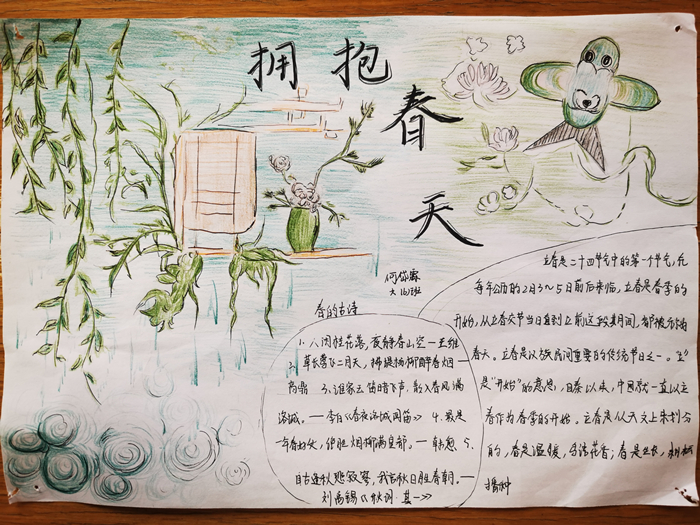 拥抱
春
天
春的古诗
1. 人闲桂花落，夜静春山空—王维
2. 草长莺飞二月天，拂堤杨柳醉春烟—
高鼎 3. 谁家玉笛暗飞声，散入春风满
洛城。—李白《春夜洛城闻笛》 4. 最是
一年春好处，绝胜烟柳满皇都。—韩愈 5.
自古逢秋悲寂寥，我言秋日胜春朝。—
刘禹锡《秋词 其一》
立春是二十四节气中的第一个节气，在
每年公历的2月3～5日前后来临，立春是春季的
开始，从立春交节当日直到立夏前这段期间，都被称为
春天。立春是汉族民间重要的传统节日之一。"立"
是"开始"的意思，自秦以来，中国就一直以立
春作为春季的开始。立春是从天文上来划分
的，春是温暖，鸟语花香；春是生长，耕耘
播种